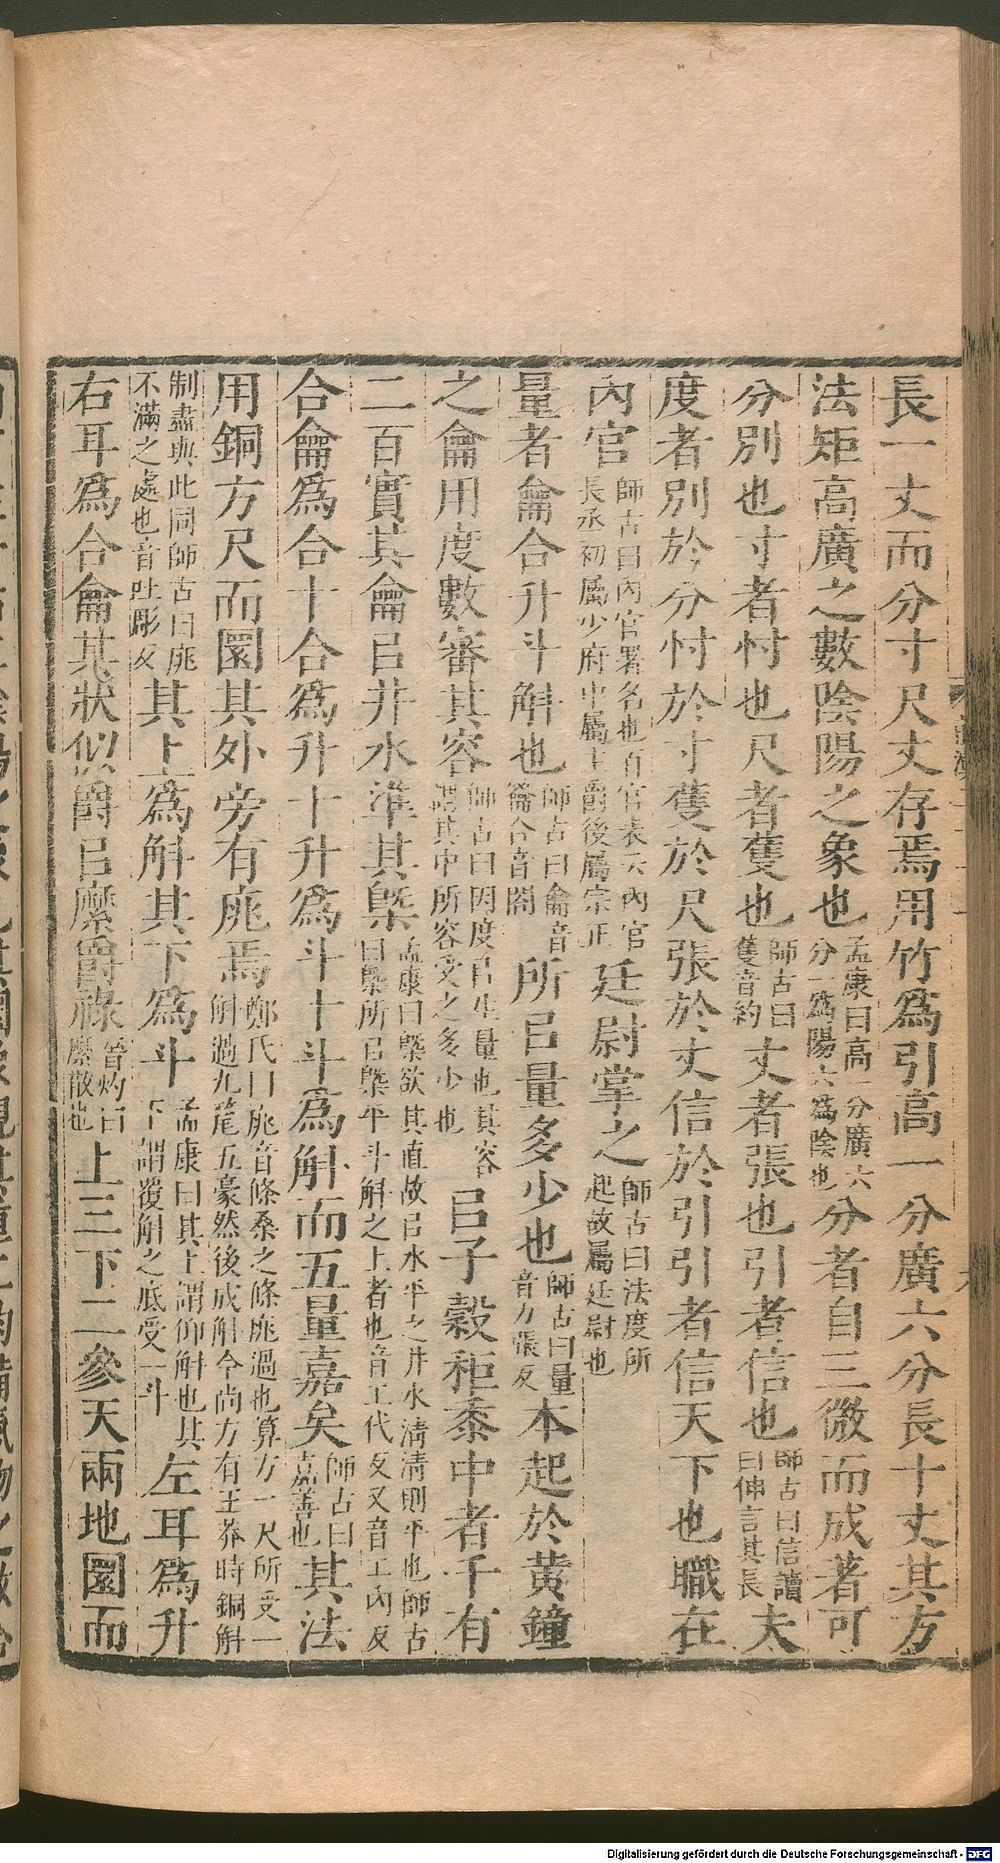 長一丈而分寸尺丈存焉用竹爲引高一分廣六分長十丈其方
法矩高廣之數陰陽之象也孟康曰高一分廣六分一爲陽六爲陰也分者自三微而成著可
分別也寸者忖也尺者蒦也師古曰蒦音約丈者張也引者信也師古曰信讀曰伸言其長夫
度者別於分忖於寸蒦於尺張於丈信於引引者信天下也職在
內官師古曰內官署名也百官表云內官長丞初屬少府中屬主爵後屬宗正廷尉掌之師古曰法度所起故屬廷尉也
量者龠合升斗斛也師古曰龠音籥合音閤所㠯量多少也師古曰量音力張反本起於黄鐘
之龠用度數審其容師古曰因度㠯生量也其容謂其中所容受之多少也㠯子穀秬黍中者千有
二百實其龠㠯井水準其槩孟康曰槩欲其直故㠯水平之井水清清則平也師古曰槩所㠯槩平斗斛之上者也音工代反又音工內反
合龠爲合十合爲升十升爲斗十斗爲斛而五量嘉矣師古曰嘉善也其法
用銅方尺而圜其外旁有庣焉鄭氏曰庣音條桑之條庣過也算方一尺所受一斛過九氂五豪然後成斛今尚方有王莽時銅斛
制盡與此同師古曰庣不滿之處也音吐彫反其上爲斛其下爲斗孟康曰其上謂仰斛也其下謂覆斛之底受一斗左耳爲升
右耳爲合龠其狀似爵㠯縻爵祿晉灼曰縻散也上三下二參天兩地圜而
Digitalisierung gefördert durch die Deutsche Forschungsgemeinschaft - DFG